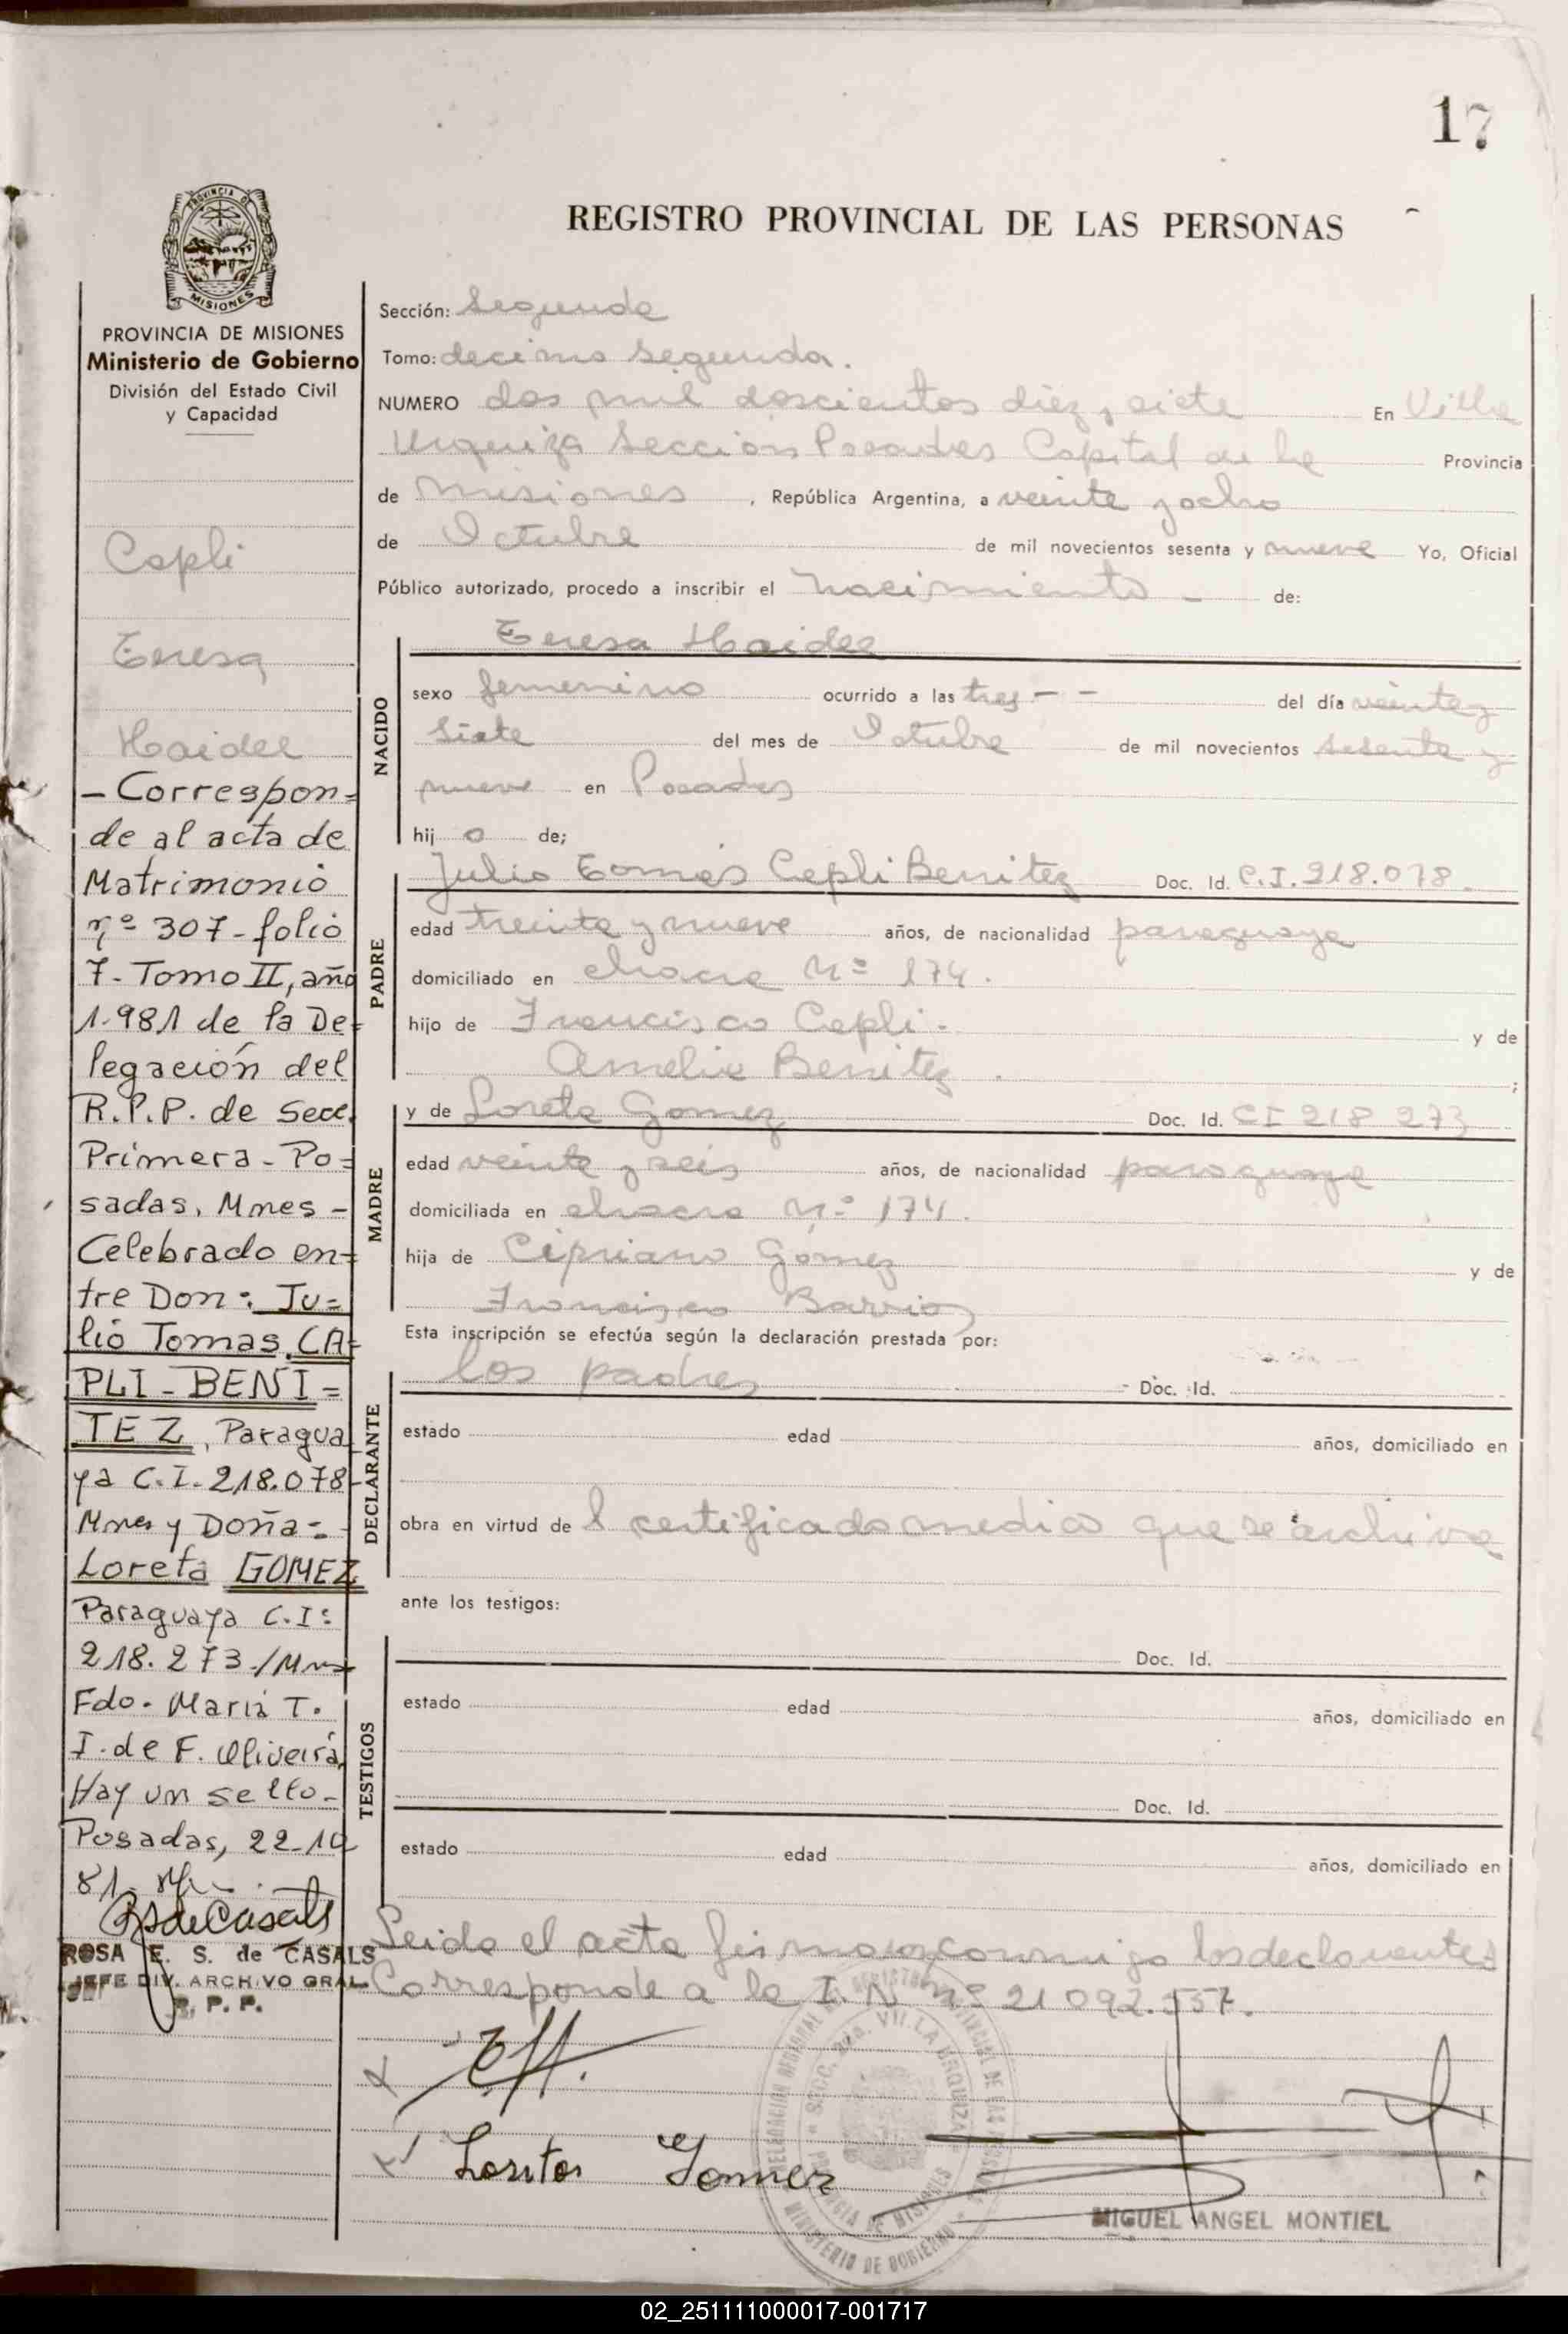 17
REGISTRO PROVINCIAL DE LAS PERSONAS
MISIONES
PROVINCIA DE MISIONES
Ministerio de Gobierno
División del Estado Civil
y Capacidad
Capli
Teresa
Haidee
- Correspon=
de al acta de
Matrimonio
nº 307-folio
7-Tomo II, año
1.981 de la De=
legación del
R.P.P. de Secc.
Primera - Po=
sadas, Mnes -
Celebrado en=
tre Don: Ju=
lio Tomas CA=
PLI - BENI=
TEZ, Paragua
ya C.I. 218.078-
Mnes y Doña:
Loreta GOMEZ
Paraguaya C.I:
218.273/Mns
Fdo. Maria T.
I. de F. Oliveira
Hay un sello-
Posadas, 22-10
81
RSdeCasals
ROSA E. S. de CASALS
JEFE DIV. ARCHIVO GRAL
R. P. P.
Sección: Segunda
Tomo: decimo segunda.
NUMERO dos mil doscientos diez y siete En Villa
Urquiza Seccion Posadas Capital de la Provincia
de Misiones, República Argentina, a veinte y ocho
de Octubre de mil novecientos sesenta y nueve Yo, Oficial
Público autorizado, procedo a inscribir el nacimiento - de:
Teresa Haidee
NACIDO
sexo femenino ocurrido a las tres - - del día veinte y
siete del mes de Octubre de mil novecientos sesenta y
nueve en Posadas
hij o de;
PADRE
Julio Tomás Capli Benitez Doc. Id. C.I. 218.078.
edad treinta y nueve años, de nacionalidad paraguaya
domiciliado en chacra Nº 174.
hijo de Francisco Capli. y de
Amelia Benitez. ;
MADRE
y de Loreta Gomez Doc. Id. CI 218 273
edad veinte y seis años, de nacionalidad paraguaya
domiciliada en chacra Nº 174.
hija de Cipriano Gómez y de
Francisca Barrios
Esta inscripción se efectúa según la declaración prestada por:
DECLARANTE
los padres - Doc. Id.
estado edad años, domiciliado en
obra en virtud de l certificado medico que se archiva
ante los testigos:
TESTIGOS
Doc. Id.
estado edad años, domiciliado en
Doc. Id.
estado edad años, domiciliado en
Leida el acta firman conmigo los declarantes
Corresponde a la I. N. nº 21 092.557.
Loreta Gomez
SECC. 2da. VILLA URQUIZA
PROVINCIA DE MISIONES
MINISTERIO DE GOBIERNO
MIGUEL ANGEL MONTIEL
02_251111000017-001717